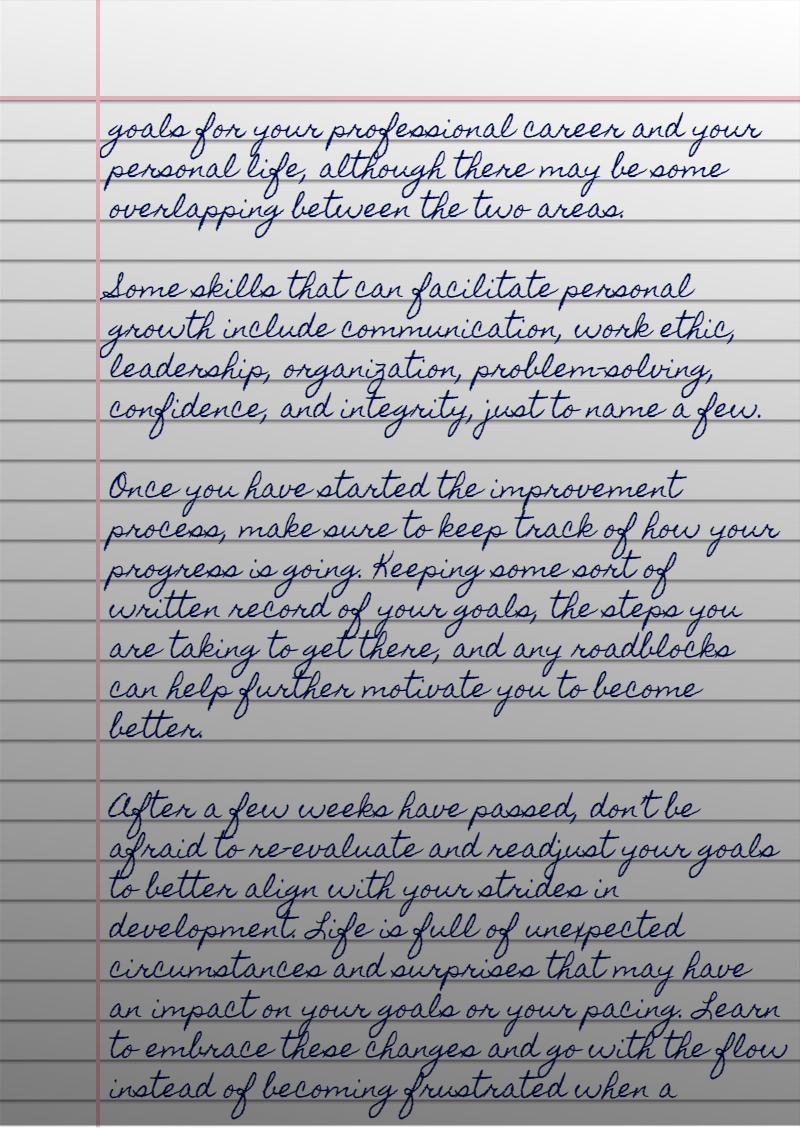 goals for your professional career and your
personal life, although there may be some
overlapping between the two areas.
Some skills that can facilitate personal
growth include communication, work ethic,
leadership, organization, problem-solving,
confidence, and integrity, just to name a few.
Once you have started the improvement
process, make sure to keep track of how your
progress is going. Keeping some sort of
written record of your goals, the steps you
are taking to get there, and any roadblocks
can help further motivate you to become
better.
After a few weeks have passed, don't be
afraid to re-evaluate and readjust your goals
to better align with your strides in
development. Life is full of unexpected
circumstances and surprises that may have
an impact on your goals or your pacing. Learn
to embrace these changes and go with the flow
instead of becoming frustrated when a